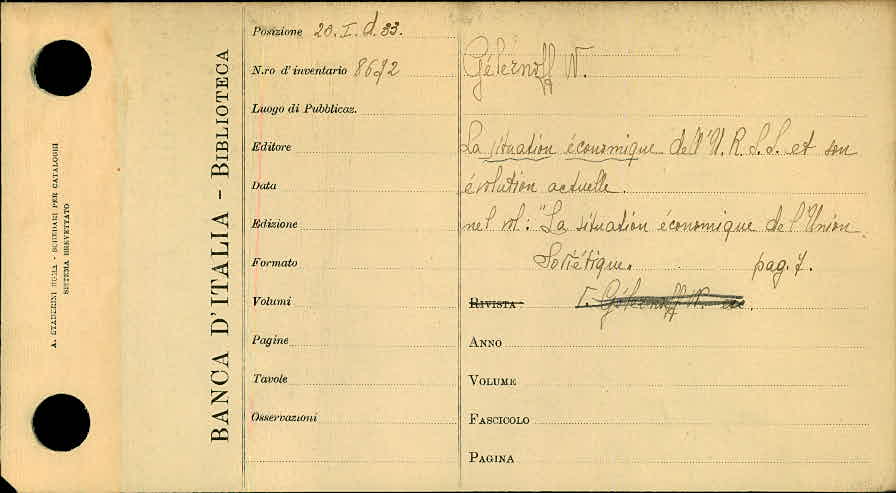 A. STADERINI ROMA - SCHEDARI PER CATALOGHI
SISTEMA BREVETTATO
BANCA D'ITALIA - BIBLIOTECA
Posizione 20. I. d. 33.
N.ro d'inventario 8672
Luogo di Pubblicaz.
Editore
Data
Edizione
Formato
Volumi
Pagine
Tavole
Osservazioni
Gélernoff W.
La situation économique dell'U.R.S.S. et son
évolution actuelle.
nel vol: "La situation économique de l'Union
Soviétique. pag. 7.
RIVISTA Gélernoff W.
ANNO
VOLUME
FASCICOLO
PAGINA